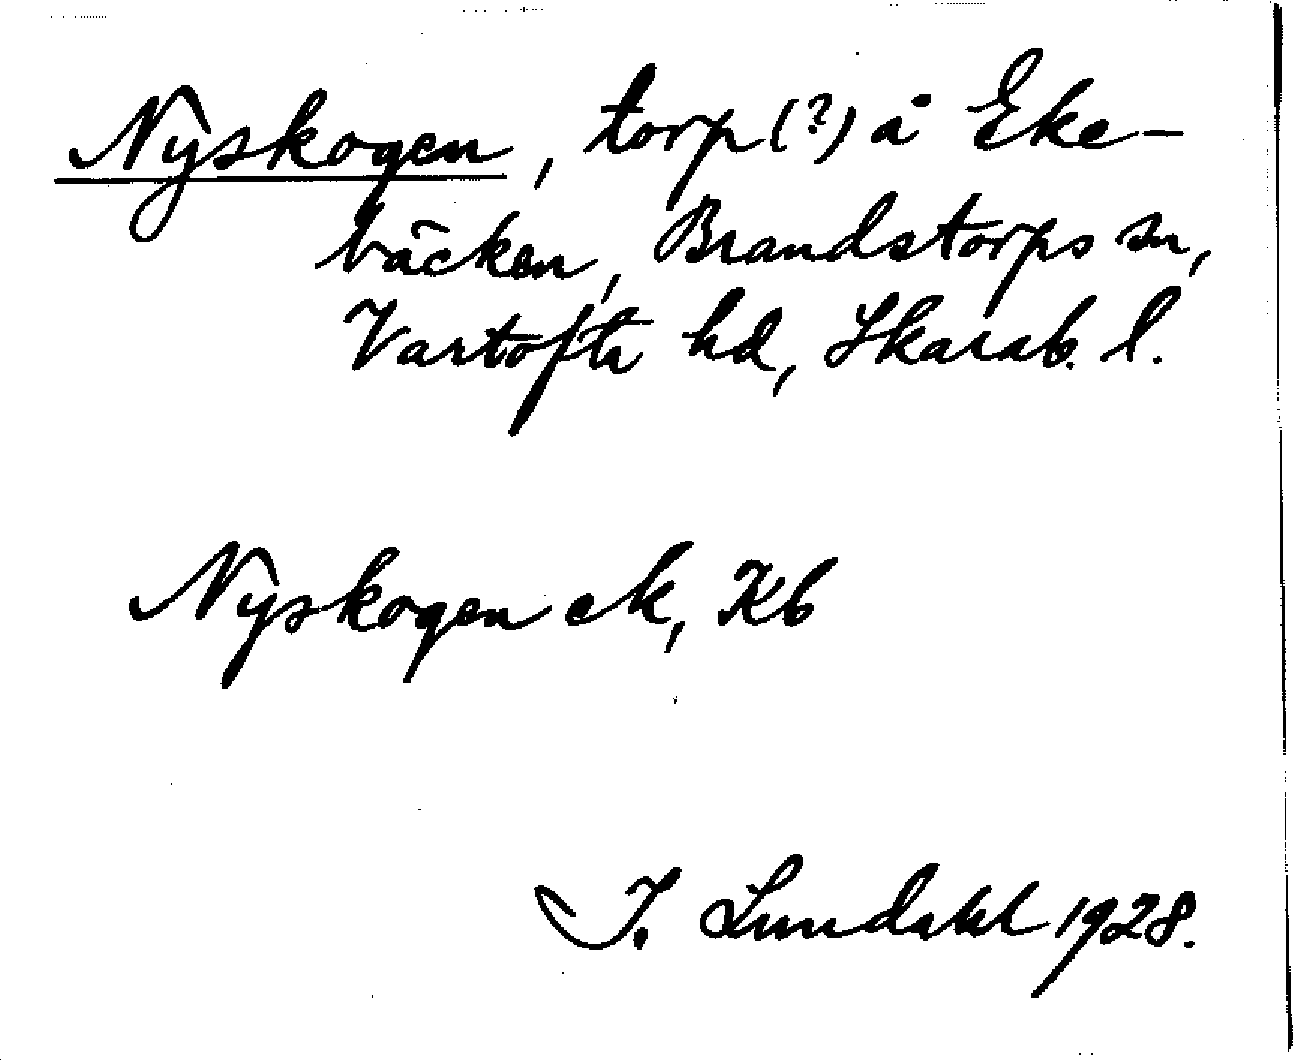 Nyskogen, torp(?) å Eke-
bäcken, Brandstorps sn,
Vartofta hd, Skarab. l.
Nyskogen ek, Kb
I. Lundahl 1928.